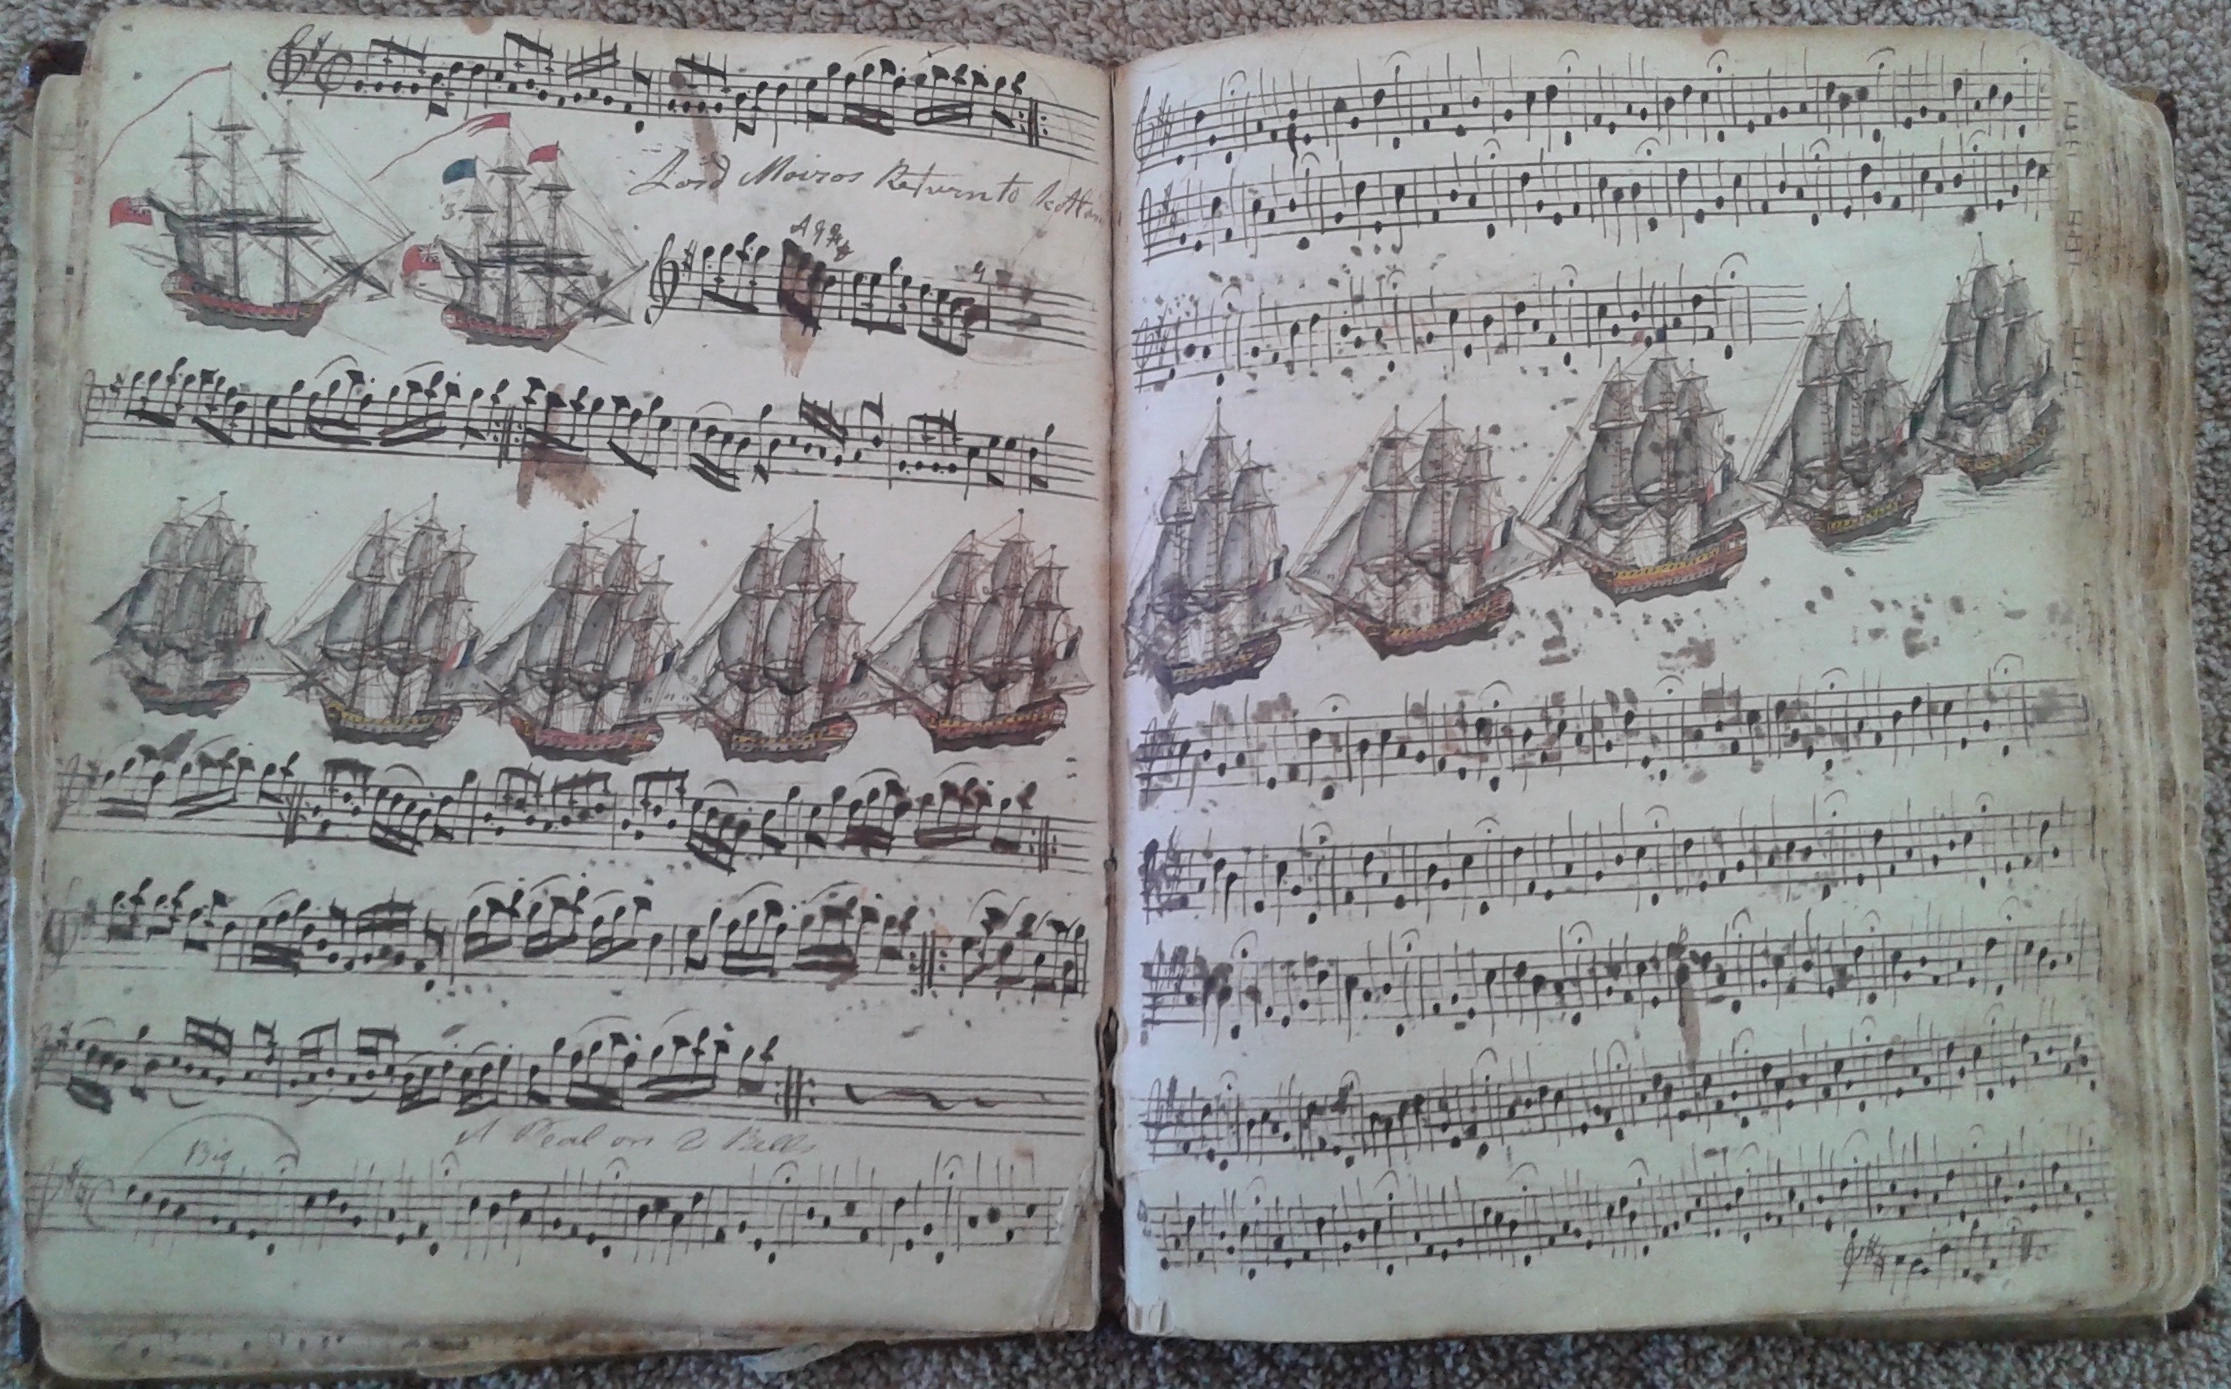 Lord Moiras Return to Scotland
Big
A Peal on 8 Bells